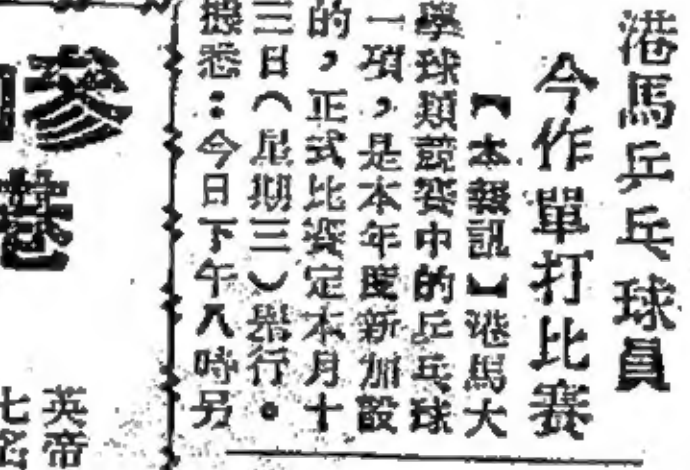 港馬乒乓球員
今作單打比賽
【本報訊】港馬大
學球類競賽中的乒乓球
一項，是本年度新加設
的，正式比賽定本月十
三日（星期三）舉行。
據悉：今日下午八時另
參
港
英帝
七